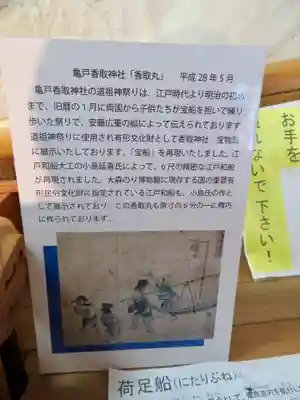 亀戸香取神社「香取丸」　平成28年5月
亀戸香取神社の道祖神祭りは、江戸時代より明治の初め
まで、旧暦の1月に両国から子供たちが宝船を担いで練り
歩いた祭りで、安藤広重の絵によって伝えられております
道祖神祭りに使用され有形文化財として香取神社　宝物
に展示いたしております、「宝船」を再現いたしました。江
戸和船大工の小島延喜氏によって、6尺の精密な江戸和船
が再現されました。大森のり博物館に現存する国の重要有
形民俗文化財に指定されている江戸和船も、小島氏の作と
して展示されており　この香取丸も原寸の6分の一に精巧
に作られております
お手を
れないで下さい！
荷足船(にたりぶね)